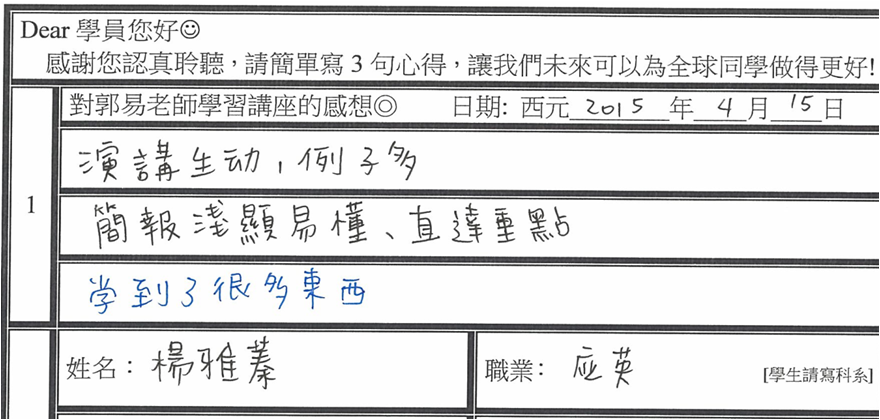 Dear 學員您好☺
感謝您認真聆聽，請簡單寫 3 句心得，讓我們未來可以為全球同學做得更好!
1
對郭易老師學習講座的感想◎ 日期: 西元 2015 年 4 月 15 日
演講生动，例子多
簡報淺顯易懂、直達重點
学到了很多東西
姓名： 楊雅蓁 職業： 应英 [學生請寫科系]